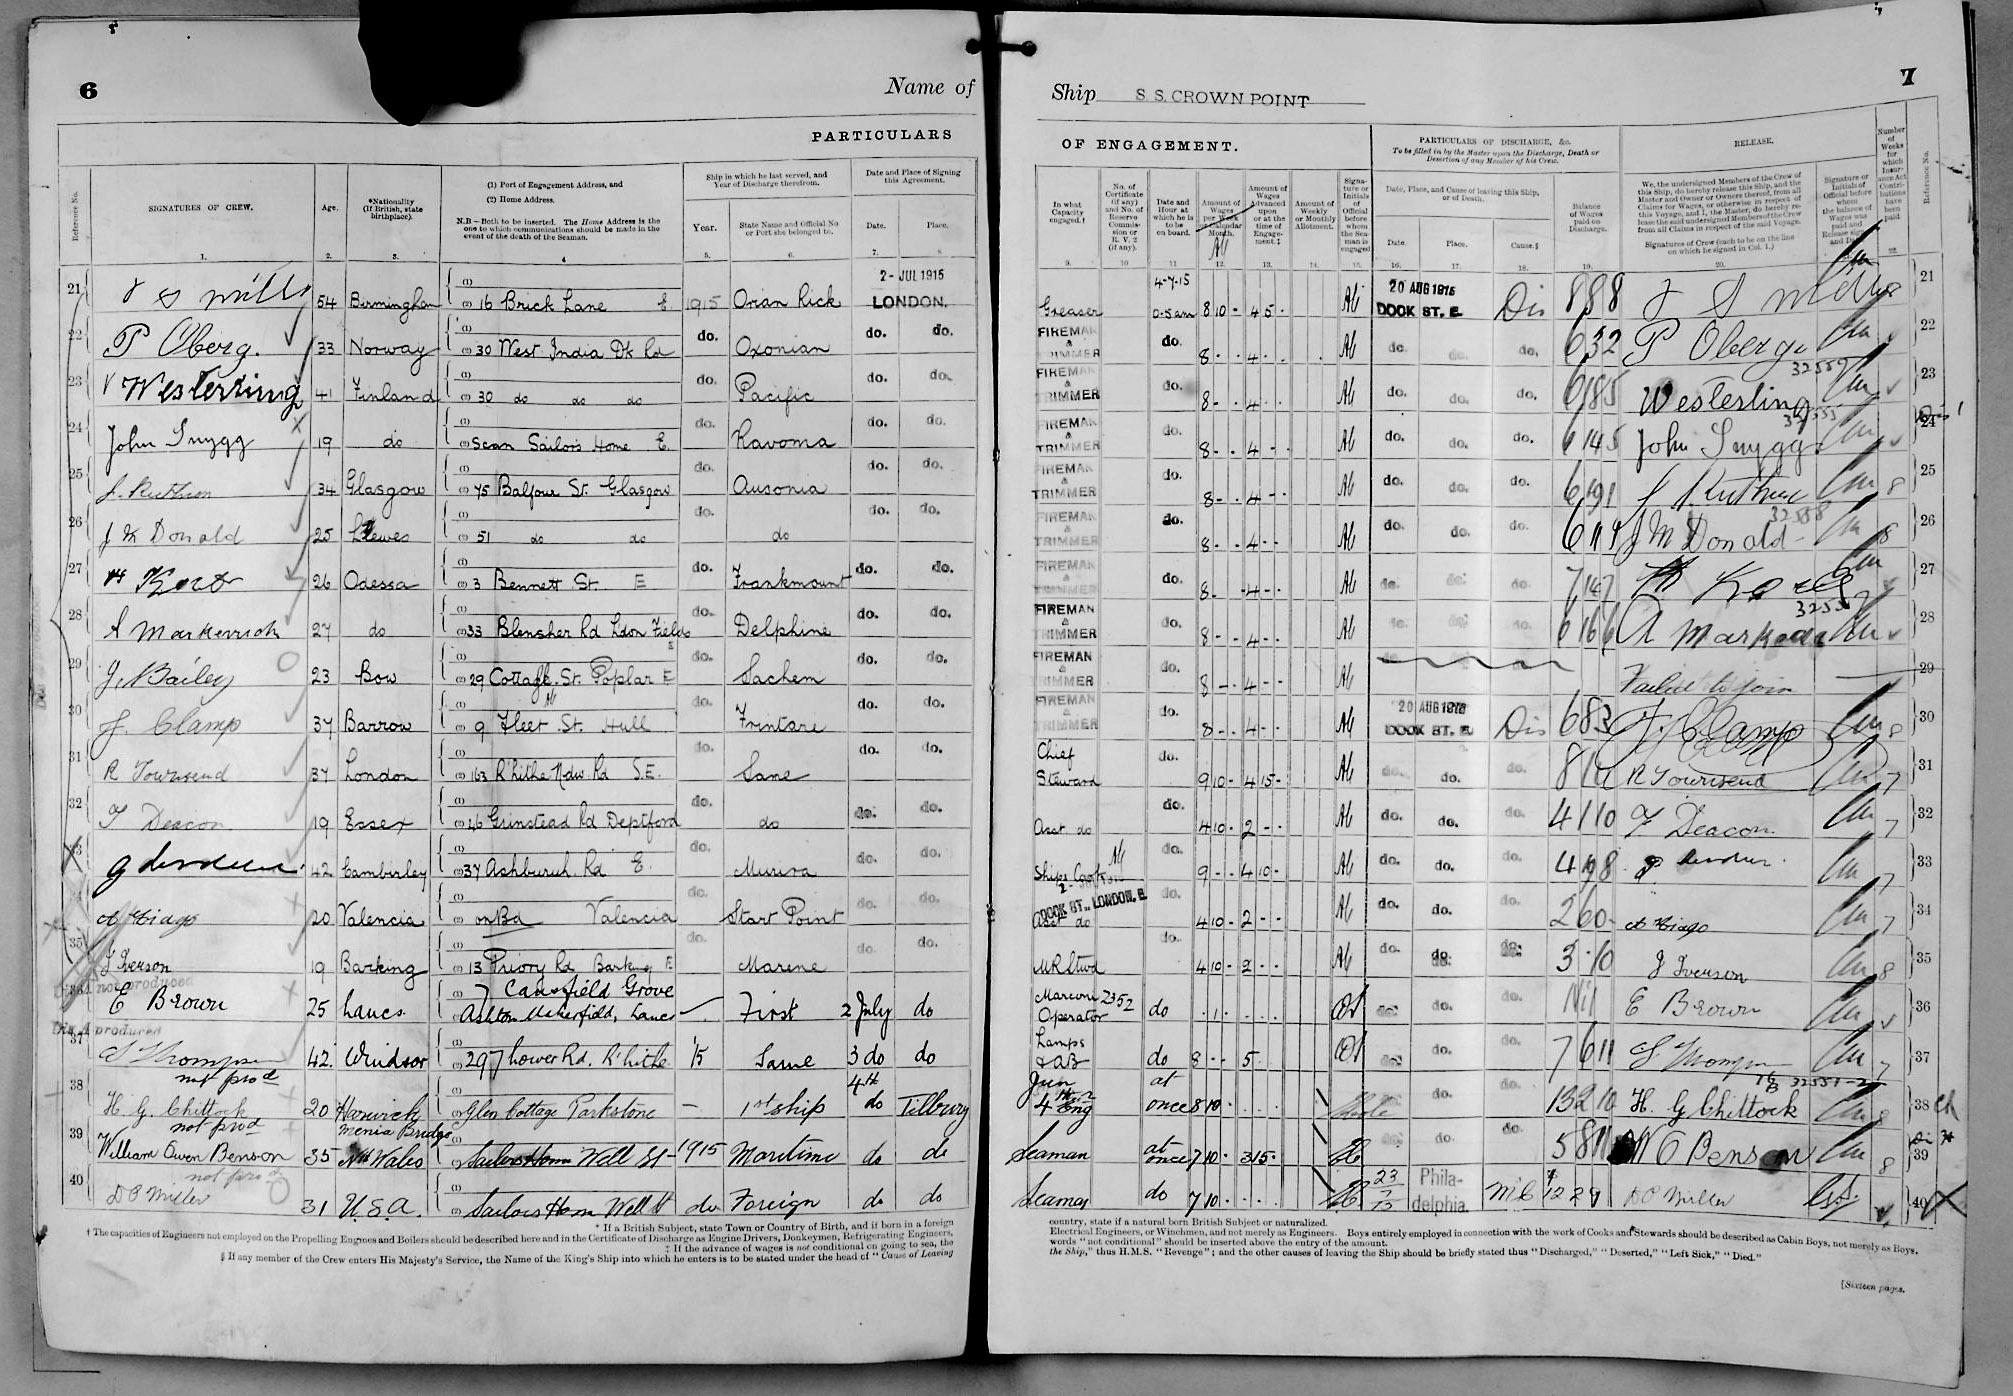 6
Name of
PARTICULARS
Reference No.
SIGNATURES OF CREW.
Age.
*Nationality
(If British, state
birthplace).
(1) Port of Engagement Address, and
(2) Home Address.
N.B.—Both to be inserted. The Home Address is the
one to which communications should be made in the
event of the death of the Seaman.
Ship in which he last served, and
Year of Discharge therefrom.
Year.
State Name and Official No
or Port she belonged to.
Date and Place of Signing
this Agreement.
Date.
Place.
1.
2.
3.
4
5.
6.
7.
8.
21 J S Mills 54 Birmingham (1) (2) 16 Brick Lane E 1915 Orian Rick 2 - JUL 1915 LONDON.
22 P Oberg. 33 Norway (1) (2) 30 West India Dk Rd do. Oxonian do. do.
23 Westerling 41 Finland (1) (2) 30 do do do do. Pacific do. do.
24 John Snygg 19 do (1) (2) Scan Sailors Home E. do. Ravoma do. do.
25 J. Ruthven 34 Glasgow (1) (2) 75 Balfour St. Glasgow do. Ausonia do. do.
26 J McDonald 25 Lewes (1) (2) 51 do do do. do do. do.
27 26 Odessa (1) (2) 3 Bennett St. E do. Frankmount do. do.
28 A 27 do (1) (2) 33 Rd Ldon Fields do. Delphine do. do.
29 J. Bailey 23 Bow (1) (2) 29 Cottage St. Poplar E do. Sachem do. do.
30 J. Clamp 37 Barrow (1) (2) 9 Fleet St. Hull do. Frintare do. do.
31 R Townsend 37 London (1) (2) 163 R'hithe Rd S.E. do. Same do. do.
32 F Deacon 19 Essex (1) (2) 46 Grinstead Rd Deptford do. do do. do.
33 42 Camberley (1) (2) 37 Ashburch Rd E. do. do. do.
34 20 Valencia (1) (2) on Bd Valencia do. Start Point do. do.
35 J Iverson 19 Barking (1) (2) 13 Priory Rd Barking E do. Marene do. do.
not produced
36 E Brown 25 Lancs. (1) 7 Cansfield Grove
Ashton Makerfield, Lancs — First 2 July do
Dis A produced
37 Thompson 42. Windsor (1) 297 Lower Rd. R'hithe '15 Same 3 do do
not prod
38 H. G. Chittock 20 Harwich (1) (2) Glen Cottage Parkstone — 1st ship 4th do Tilbury
not prod
39 William Owen Benson 35 Menia Bridge Nth Wales (1) (2) Sailors Home Well St 1915 Maritime do do
not prod
40 D P Miller 31 U.S.A. (1) (2) Sailors Home Well St do Foreign do do
* If a British Subject, state Town or Country of Birth, and if born in a foreign
† The capacities of Engineers not employed on the Propelling Engines and Boilers should be described here and in the Certificate of Discharge as Engine Drivers, Donkeymen, Refrigerating Engineers,
‡ If the advance of wages is not conditional on going to sea, the
§ If any member of the Crew enters His Majesty's Service, the Name of the King's Ship into which he enters is to be stated under the head of "Cause of Leaving
7
Ship S. S. CROWN POINT
OF ENGAGEMENT.
PARTICULARS OF DISCHARGE, &c.
To be filled in by the Master upon the Discharge, Death or
Desertion of any Member of his Crew.
RELEASE.
In what
Capacity
engaged.†
No. of
Certificate
(if any)
and No. of
Reserve
Commis-
sion or
R. V. 2
(if any).
Date and
Hour at
which he is
to be
on board.
Amount of
Wages
per Week
or Calendar
Month.
Amount of
Wages
Advanced
upon
or at the
time of
Engage-
ment.‡
Amount of
Weekly
or Monthly
Allotment.
Signa-
ture or
Initials
of
Official
before
whom
the Sea-
man is
engaged
Date, Place, and Cause of leaving this Ship,
or of Death.
Date.
Place.
Cause.§
Balance
of Wages
paid on
Discharge.
We, the undersigned Members of the Crew of
this Ship, do hereby release this Ship, and the
Master and Owner or Owners thereof, from all
Claims for Wages, or otherwise in respect of
this Voyage, and I, the Master, do hereby re-
lease the said undersigned Members of the Crew
from all Claims in respect of the said Voyage.
Signatures of Crew (each to be on the line
on which he signed in Col. 1.)
Signature or
Initials of
Official before
whom
the balance of
Wages was
Paid and
Release signed
Number
of
Weeks
for
which
Insur-
ance Act
Contri-
butions
have
been
paid.
Reference No.
9.
10
11
12.
13.
14.
15.
16.
17.
18.
19.
20.
22.
Greaser 4-7-15 8 10 - 4 5 - 20 AUG 1915 DOCK ST. E. Dis 8 8 8 21
FIREMAN & TRIMMER do. 8 - - 4 - - do. do. do. 6 3 2 P Oberg 22
FIREMAN & TRIMMER do. 8 - - 4 - - do. do. do. 6 18 5 Westerling 23
FIREMAN & TRIMMER do. 8 - - 4 - - do. do. do. 6 14 5 John Snygg 24
FIREMAN & TRIMMER do. 8 - - 4 - - do. do. do. 6 19 1 J Ruthven 8 25
FIREMAN & TRIMMER do. 8 - - 4 - - do. do. do. J McDonald 8 26
FIREMAN & TRIMMER do. 8 - - 4 - - do. do. do. 7 14 7 27
FIREMAN & TRIMMER do. 8 - - 4 - - do. do. do. 6 16 6 A 28
FIREMAN & TRIMMER do. 8 - - 4 - - Failed to join 29
FIREMAN & TRIMMER do. 8 - - 4 - - 20 AUG 1915 DOCK ST. E. Dis 6 8 3 J. Clamp 8 30
Chief Steward do. 9 10 - 4 15 - do. do. do. R Townsend 7 31
Asst do do. 4 10 - 2 - - do. do. do. 4 11 10 F Deacon 7 32
Ships Cook do. 9 - - 4 10 - do. do. do. 4 9 8 7 33
DOCK ST., LONDON, E.
Asst do do. 4 10 - 2 - - do. do. do. 2 6 0 7 34
M R Stwd do. 4 10 - 2 - - do. do. do. 3 - 10 J Iverson 8 35
Marconi Operator 2352 do - 1 - do. do. do. Nil E Brown 36
Lamps & AB do 8 - - 5 do. do. do. 7 6 11 Thompson 7 37
Jun 4 Eng at once 8 10 - do. do. 13 2 10 H. G Chittock 8 38
Seaman at once 7 10 - 3 15 - do. do. do. 5 8 11 W O Benson 8 39
Seaman do 7 10 - 23/7/15 Phila-
delphia. D P Miller 40
country, state if a natural born British Subject or naturalized.
Electrical Engineers, or Winchmen, and not merely as Engineers. Boys entirely employed in connection with the work of Cooks and Stewards should be described as Cabin Boys, not merely as Boys.
words "not conditional" should be inserted above the entry of the amount.
the Ship," thus H.M.S. "Revenge"; and the other causes of leaving the Ship should be briefly stated thus "Discharged," "Deserted," "Left Sick," "Died."
[Sixteen pages.